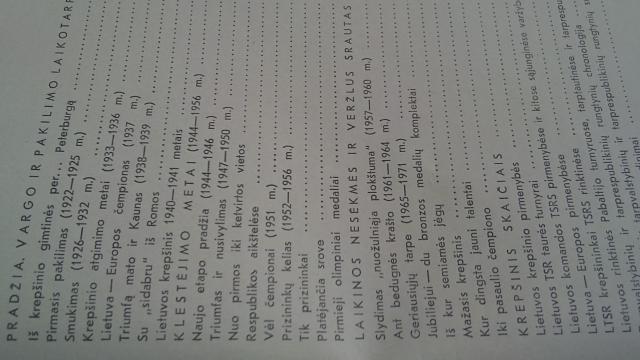 PRADŽIA, VARGO IR PAKILIMO
Iš krepšinio gimtinės per... Peterburgą
Pirmasis pakilimas (1922—1925 m.)
Smukimas (1926—1932 m.)
Krepšinio atgimimo metai (1933—1936 m.)
Lietuva — Europos čempionas (1937 m.)
Triumfą mato ir Kaunas (1938—1939 m.)
Su „sidabru" iš Romos
Lietuvos krepšinis 1940—1941 metais
KLESTĖJIMO METAI (1944—1956 m.)
Naujo etapo pradžia (1944—1946 m.)
Triumfas ir nusivylimas (1947—1950 m.)
Nuo pirmos iki ketvirtos vietos
Respublikos aikštelėse
Vėl čempionai (1951 m.)
Prizininkų kelias (1952—1956 m.)
Tik prizininkai
Platėjančia srove
Pirmieji olimpiniai medaliai
LAIKINOS NESĖKMĖS IR VERŽLUS SRAUTAS
Slydimas „nuožulniąja plokštuma" (1957—1960 m.)
Ant bedugnės krašto (1961—1964 m.)
Geriausiųjų tarpe (1965—1971 m.)
Jubiliejui — du bronzos medalių komplektai
Iš kur semiamės jėgų
Mažasis krepšinis
Kur dingsta jauni talentai
Iki pasaulio čempiono
KREPŠINIS SKAIČIAIS
Lietuvos krepšinio pirmenybės
Lietuvos TSR taurės turnyrai
Lietuvos komandos TSRS pirmenybėse ir kitose sąjunginėse
Lietuva — Europos pirmenybėse
Lietuvos krepšininkai TSRS rinktinėse, tarptautinėse ir
LTSR krepšininkai Pabaltijo turnyruose, chronologija
Lietuvos rinktinės tarprespublikinių rungtynių
Lietuvos rinktinės ir tarprespublikinių rungtynių